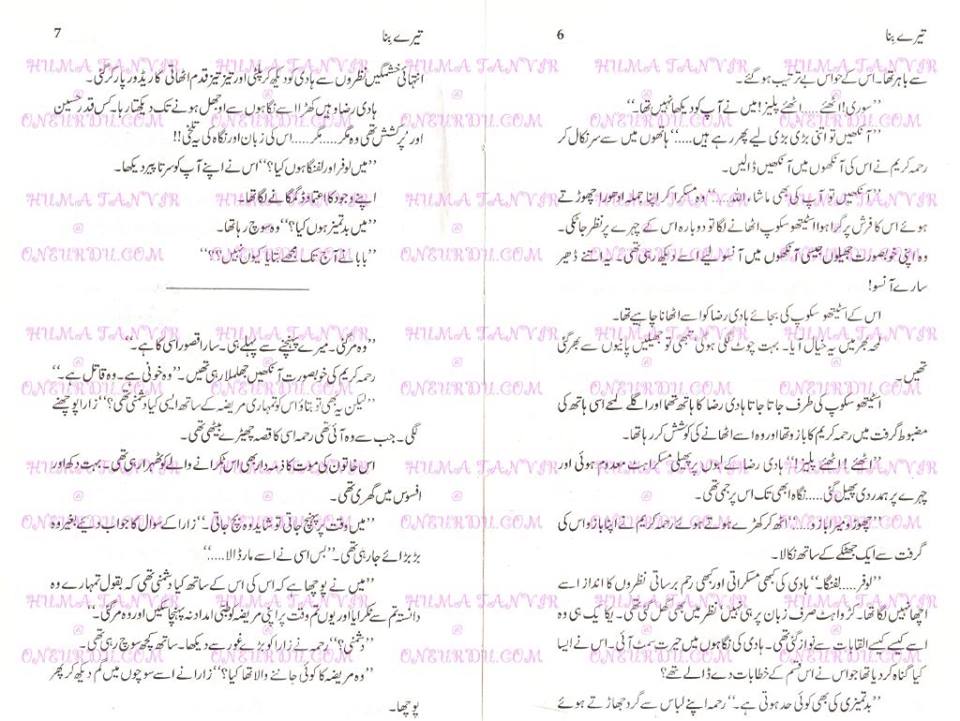 تیرے بِنا 6
سے باہر تھا۔ اس کے حواس بے ترتیب ہو گئے۔
”سوری! اٹھئے..... اٹھئے پلیز! میں نے آپ کو دیکھا نہیں تھا۔“
”آنکھیں تو اتنی بڑی بڑی لیے پھر رہے ہیں.....“ ہاتھوں میں سے سر نکال کر
رحمہ کریم نے اس کی آنکھوں میں آنکھیں ڈالیں۔
”آنکھیں تو آپ کی بھی ماشاء اللہ.....“ وہ مسکرا کر اپنا جملہ ادھورا چھوڑتے
ہوئے اس کا فرش پر گرا ہوا اسٹیتھو سکوپ اٹھانے لگا تو دوبارہ اس کے چہرے پر نظر جا ٹکی۔
وہ اپنی خوبصورت جھیلوں جیسی آنکھوں میں آنسو لیے اسے دیکھ رہی تھی۔ یہ اتنے ڈھیر
سارے آنسو!
اس کے اسٹیتھو سکوپ کی بجائے ہادی رضا کو اسے اٹھانا چاہیے تھا۔
لمحہ بھر میں یہ خیال آیا۔ بہت چوٹ لگی ہو گی، تبھی تو جھیلیں پانیوں سے بھر گئی
تھیں۔
اسٹیتھو سکوپ کی طرف جاتا جاتا ہادی رضا کا ہاتھ تھما اور اگلے لمحے اسی ہاتھ کی
مضبوط گرفت میں رحمہ کریم کا بازو تھا اور وہ اسے اٹھانے کی کوشش کر رہا تھا۔
”اٹھئے! اٹھئے پلیز!“ ہادی رضا کے لبوں پر پھیلی مسکراہٹ معدوم ہوئی اور
چہرے پر ہمدردی پھیل گئی..... نگاہ ابھی تک اس پر جمی تھی۔
”چھوڑو میرا بازو.....“ اٹھ کر کھڑے ہوتے ہوئے رحمہ کریم نے اپنا بازو اس کی
گرفت سے ایک جھٹکے کے ساتھ نکالا۔
”لوفر..... لفنگا۔“ ہادی کی کبھی مسکراتی اور کبھی رحم برساتی نظروں کا انداز اسے
اچھا نہیں لگا تھا۔ کڑواہٹ صرف زبان پر ہی نہیں، نظر میں بھی گھس گئی تھی۔ یکا یک ہی وہ
اسے کیسے کیسے القابات سے نواز گئی تھی۔ ہادی کی نگاہوں میں حیرت سمٹ آئی۔ اس نے ایسا
کیا گناہ کر دیا تھا جو اس نے اس قسم کے خطابات دے ڈالے تھے؟
”بدتمیزی کی بھی کوئی حد ہوتی ہے۔“ رحمہ اپنے لباس سے گرد جھاڑتے ہوئے
تیرے بِنا 7
انتہائی خشمگیں نظروں سے ہادی کو دیکھ کر پلٹی اور تیز تیز قدم اٹھاتی کاریڈور پار کر گئی۔
ہادی رضا وہیں کھڑا اسے نگاہوں سے اوجھل ہونے تک دیکھتا رہا۔ کس قدر حسین
اور پُرکشش تھی وہ مگر..... مگر..... اس کی زبان اور نگاہ کی یہ تلخی!!
”میں لوفر اور لفنگا ہوں کیا؟“ اس نے اپنے آپ کو سرتا پیر دیکھا۔
اپنے وجود کا اعتماد ڈگمگانے لگا تھا۔
”میں بدتمیز ہوں کیا؟“ وہ سوچ رہا تھا۔
”بابا نے آج تک مجھے بتایا کیوں نہیں؟؟“
”وہ مر گئی۔ میرے پہنچنے سے پہلے ہی۔ سارا قصور اسی کا ہے۔“
رحمہ کریم کی خوبصورت آنکھیں جھلملا رہی تھیں۔ ”وہ خونی ہے۔ وہ قاتل ہے۔“
”لیکن یہ بھی تو بتاؤ اس کو تمہاری مریضہ کے ساتھ ایسی کیا دشمنی تھی؟“ زارا پوچھنے
لگی۔ جب سے وہ آئی تھی رحمہ اسی کا قصہ چھیڑے بیٹھی تھی۔
اس خاتون کی موت کا ذمہ دار بھی اس ٹکرانے والے کو ٹھہرا رہی تھی۔ بہت دکھ اور
افسوس میں گھری تھی۔
”میں وقت پر پہنچ جاتی تو شاید وہ بچ جاتی۔“ زارا کے سوال کا جواب دیے بغیر وہ
بڑبڑائے جا رہی تھی۔ ”بس اسی نے اسے مار ڈالا.....“
”میں نے پوچھا ہے کہ اس کی اس کے ساتھ کیا دشمنی تھی کہ بقول تمہارے وہ
دانستہ تم سے ٹکرایا اور یوں تم وقت پر اپنی مریضہ کو طبی امداد نہ پہنچا سکیں اور وہ مر گئی۔“
”دشمنی؟“ رحمہ نے زارا کو بڑے غور سے دیکھا۔ ساتھ کچھ سوچ رہی تھی۔
”وہ مریضہ کا کوئی جاننے والا تھا کیا؟“ زارا نے اسے سوچوں میں گم دیکھ کر پھر
پوچھا۔
HUMA TANVIR
@
ONEURDU.COM